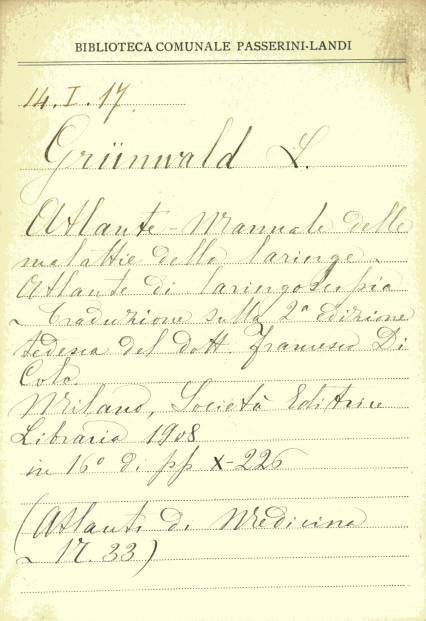 BIBLIOTECA COMUNALE PASSERINI-LANDI
14. I. 17.
Grünwald L.
Atlante-Manuale delle
malattie della laringe e
Atlante di laringoscopia
- Traduzione sulla 2ª edizione
tedesca del dott. Francesco Di
Colo.
Milano, Società Editrice
Libraria 1908
in 16º di pp X-226
(Atlanti di Medicina
N. 33)